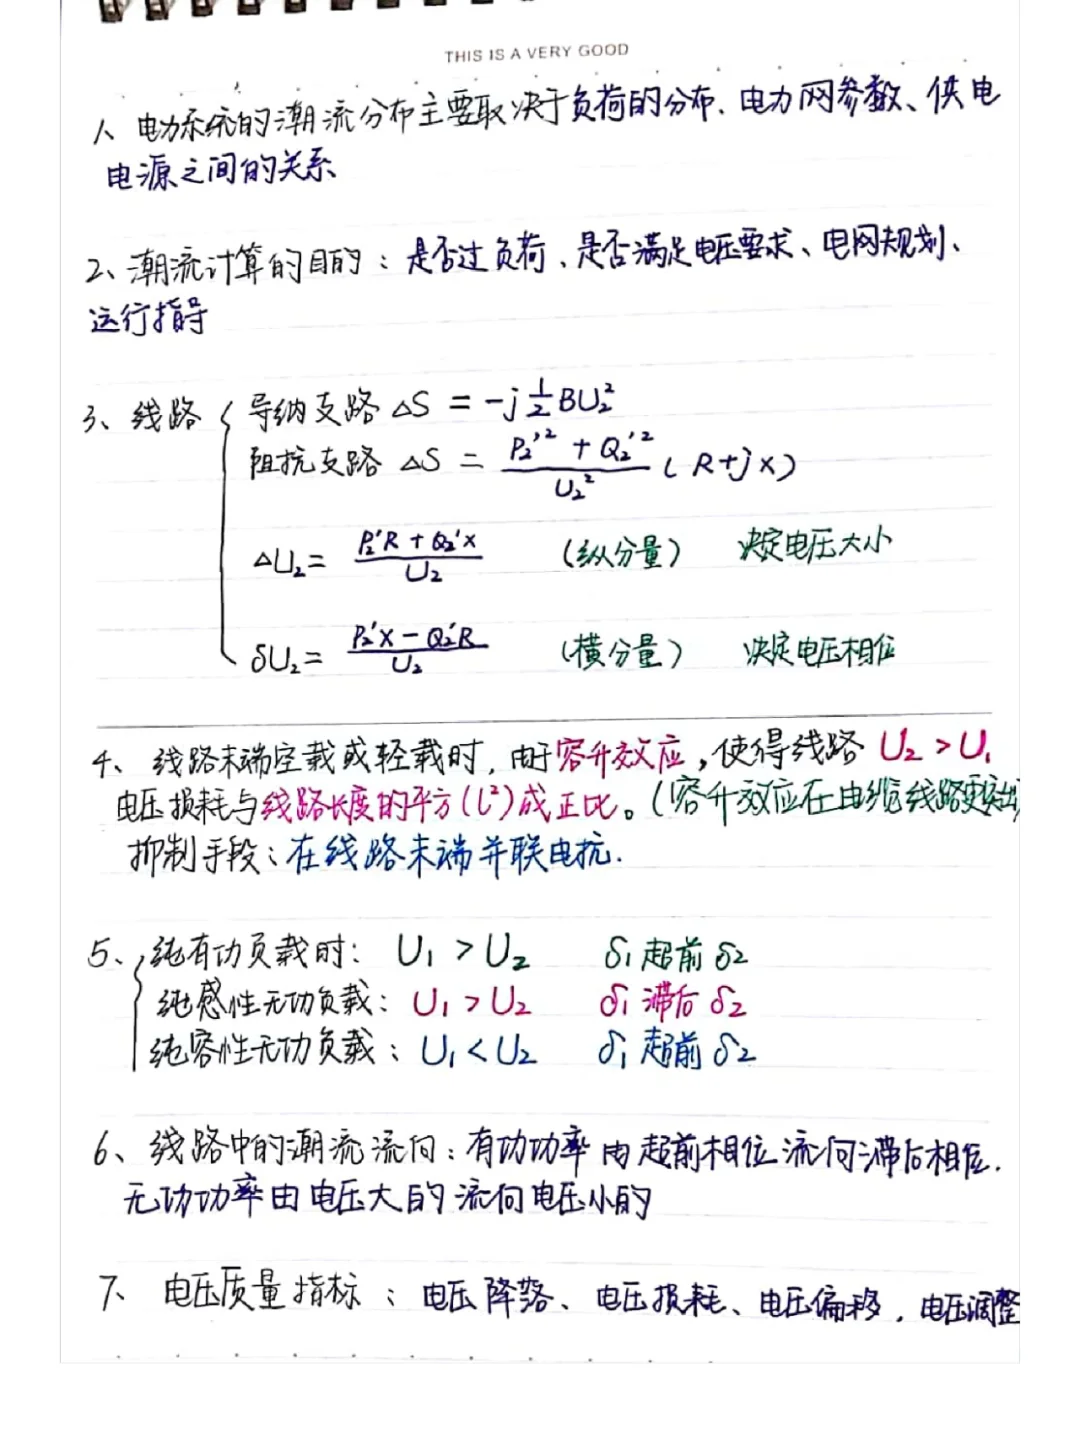 THIS IS A VERY GOOD
1、电力系统的潮流分布主要取决于负荷的分布、电力网参数、供电
电源之间的关系
2、潮流计算的目的：是否过负荷、是否满足电压要求、电网规划、
运行指导
3、线路 { 导纳支路 △S = -j 1/2 BU₂²
阻抗支路 △S = (P₂'² + Q₂'²)/U₂² (R+jX)
△U₂ = (P₂'R + Q₂'X)/U₂ (纵分量) 决定电压大小
δU₂ = (P₂'X - Q₂'R)/U₂ (横分量) 决定电压相位
4、线路末端空载或轻载时，由于容升效应，使得线路 U₂ > U₁
电压损耗与线路长度的平方(l²)成正比。(容升效应在电缆线路更突出
抑制手段：在线路末端并联电抗.
5、{ 纯有功负载时： U₁ > U₂ δ₁超前δ₂
纯感性无功负载： U₁ > U₂ δ₁滞后δ₂
纯容性无功负载： U₁ < U₂ δ₁超前δ₂
6、线路中的潮流流向：有功功率由超前相位流向滞后相位.
无功功率由电压大的流向电压小的
7、电压质量指标：电压降落、电压损耗、电压偏移，电压调整